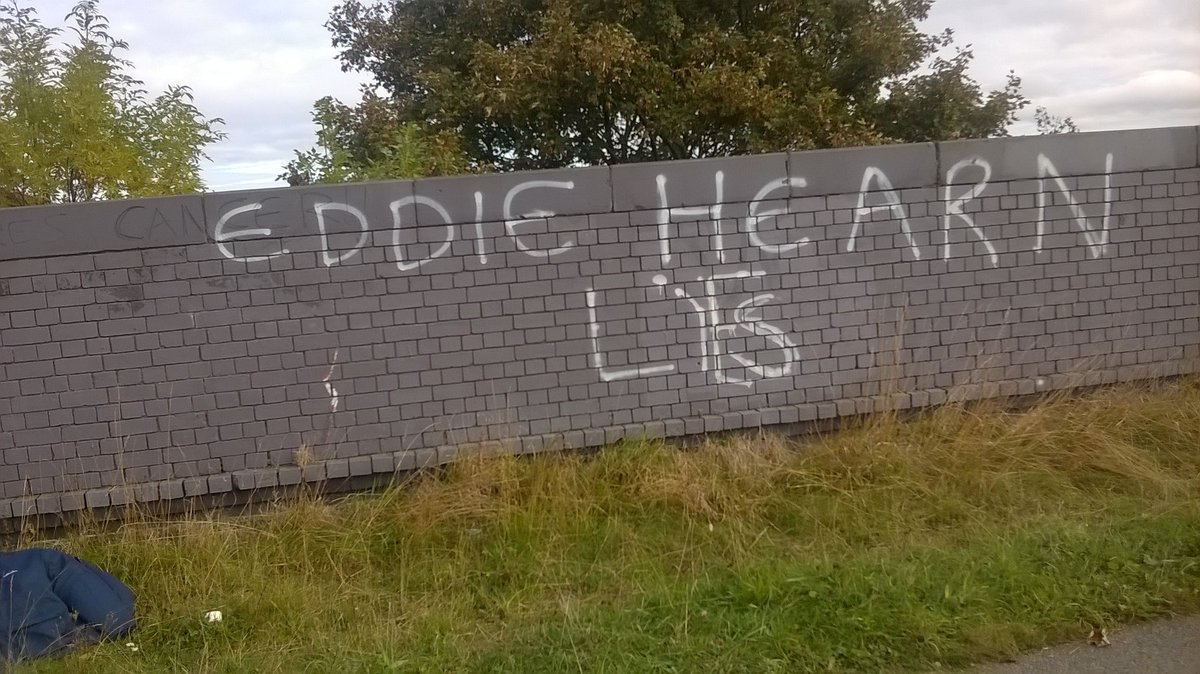 CANCER
EDDIE HEARN
LIES